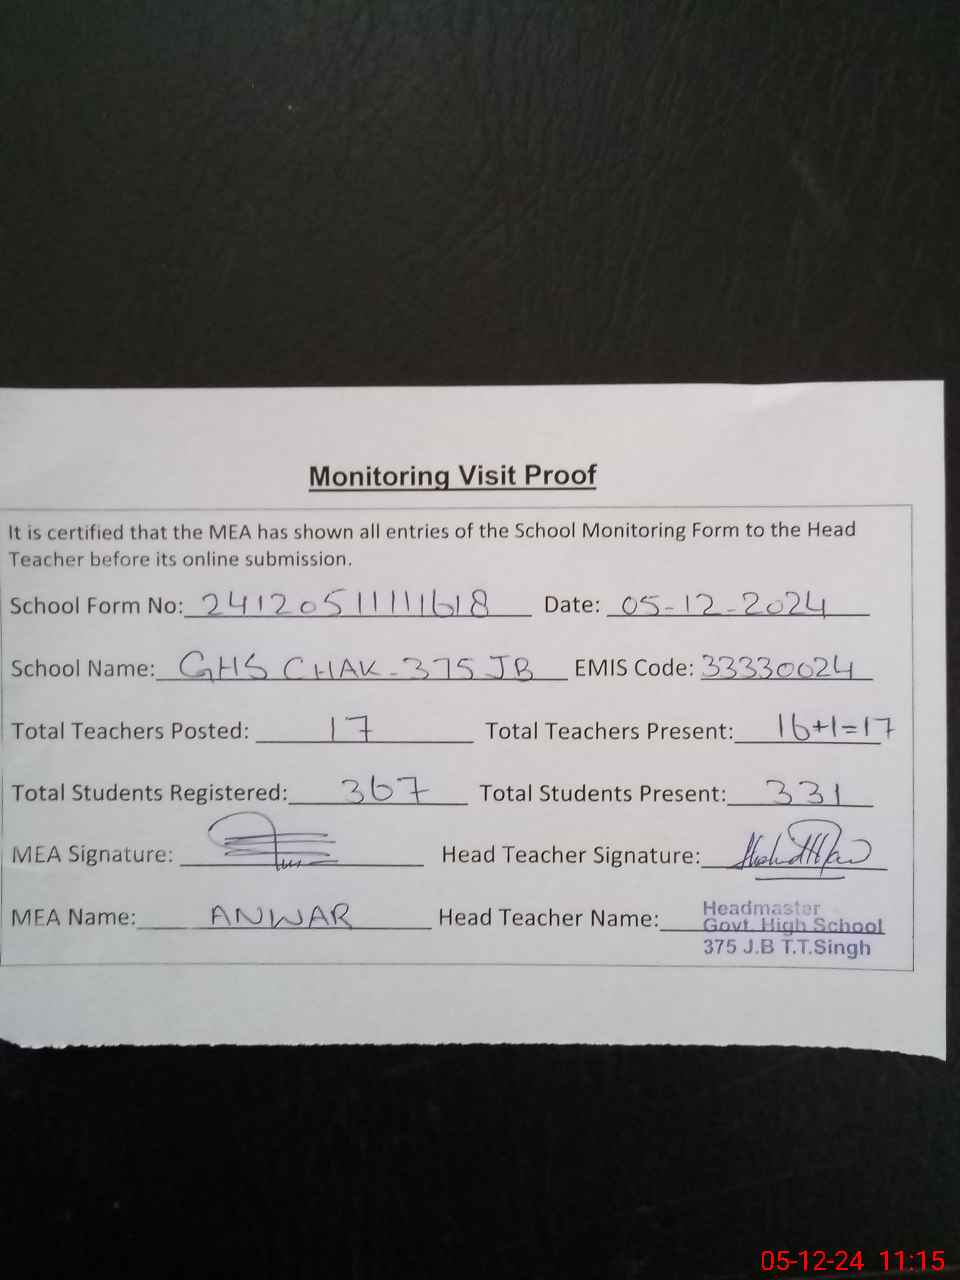 Monitoring Visit Proof
It is certified that the MEA has shown all entries of the School Monitoring Form to the Head
Teacher before its online submission.
School Form No: 241205111111618 Date: 05-12-2024
School Name: GHS CHAK-375 JB EMIS Code: 33330024
Total Teachers Posted: 17 Total Teachers Present: 16+1=17
Total Students Registered: 367 Total Students Present: 331
MEA Signature: Head Teacher Signature:
MEA Name: ANWAR Head Teacher Name: Headmaster
Govt. High School
375 J.B T.T.Singh
05-12-24 11:15